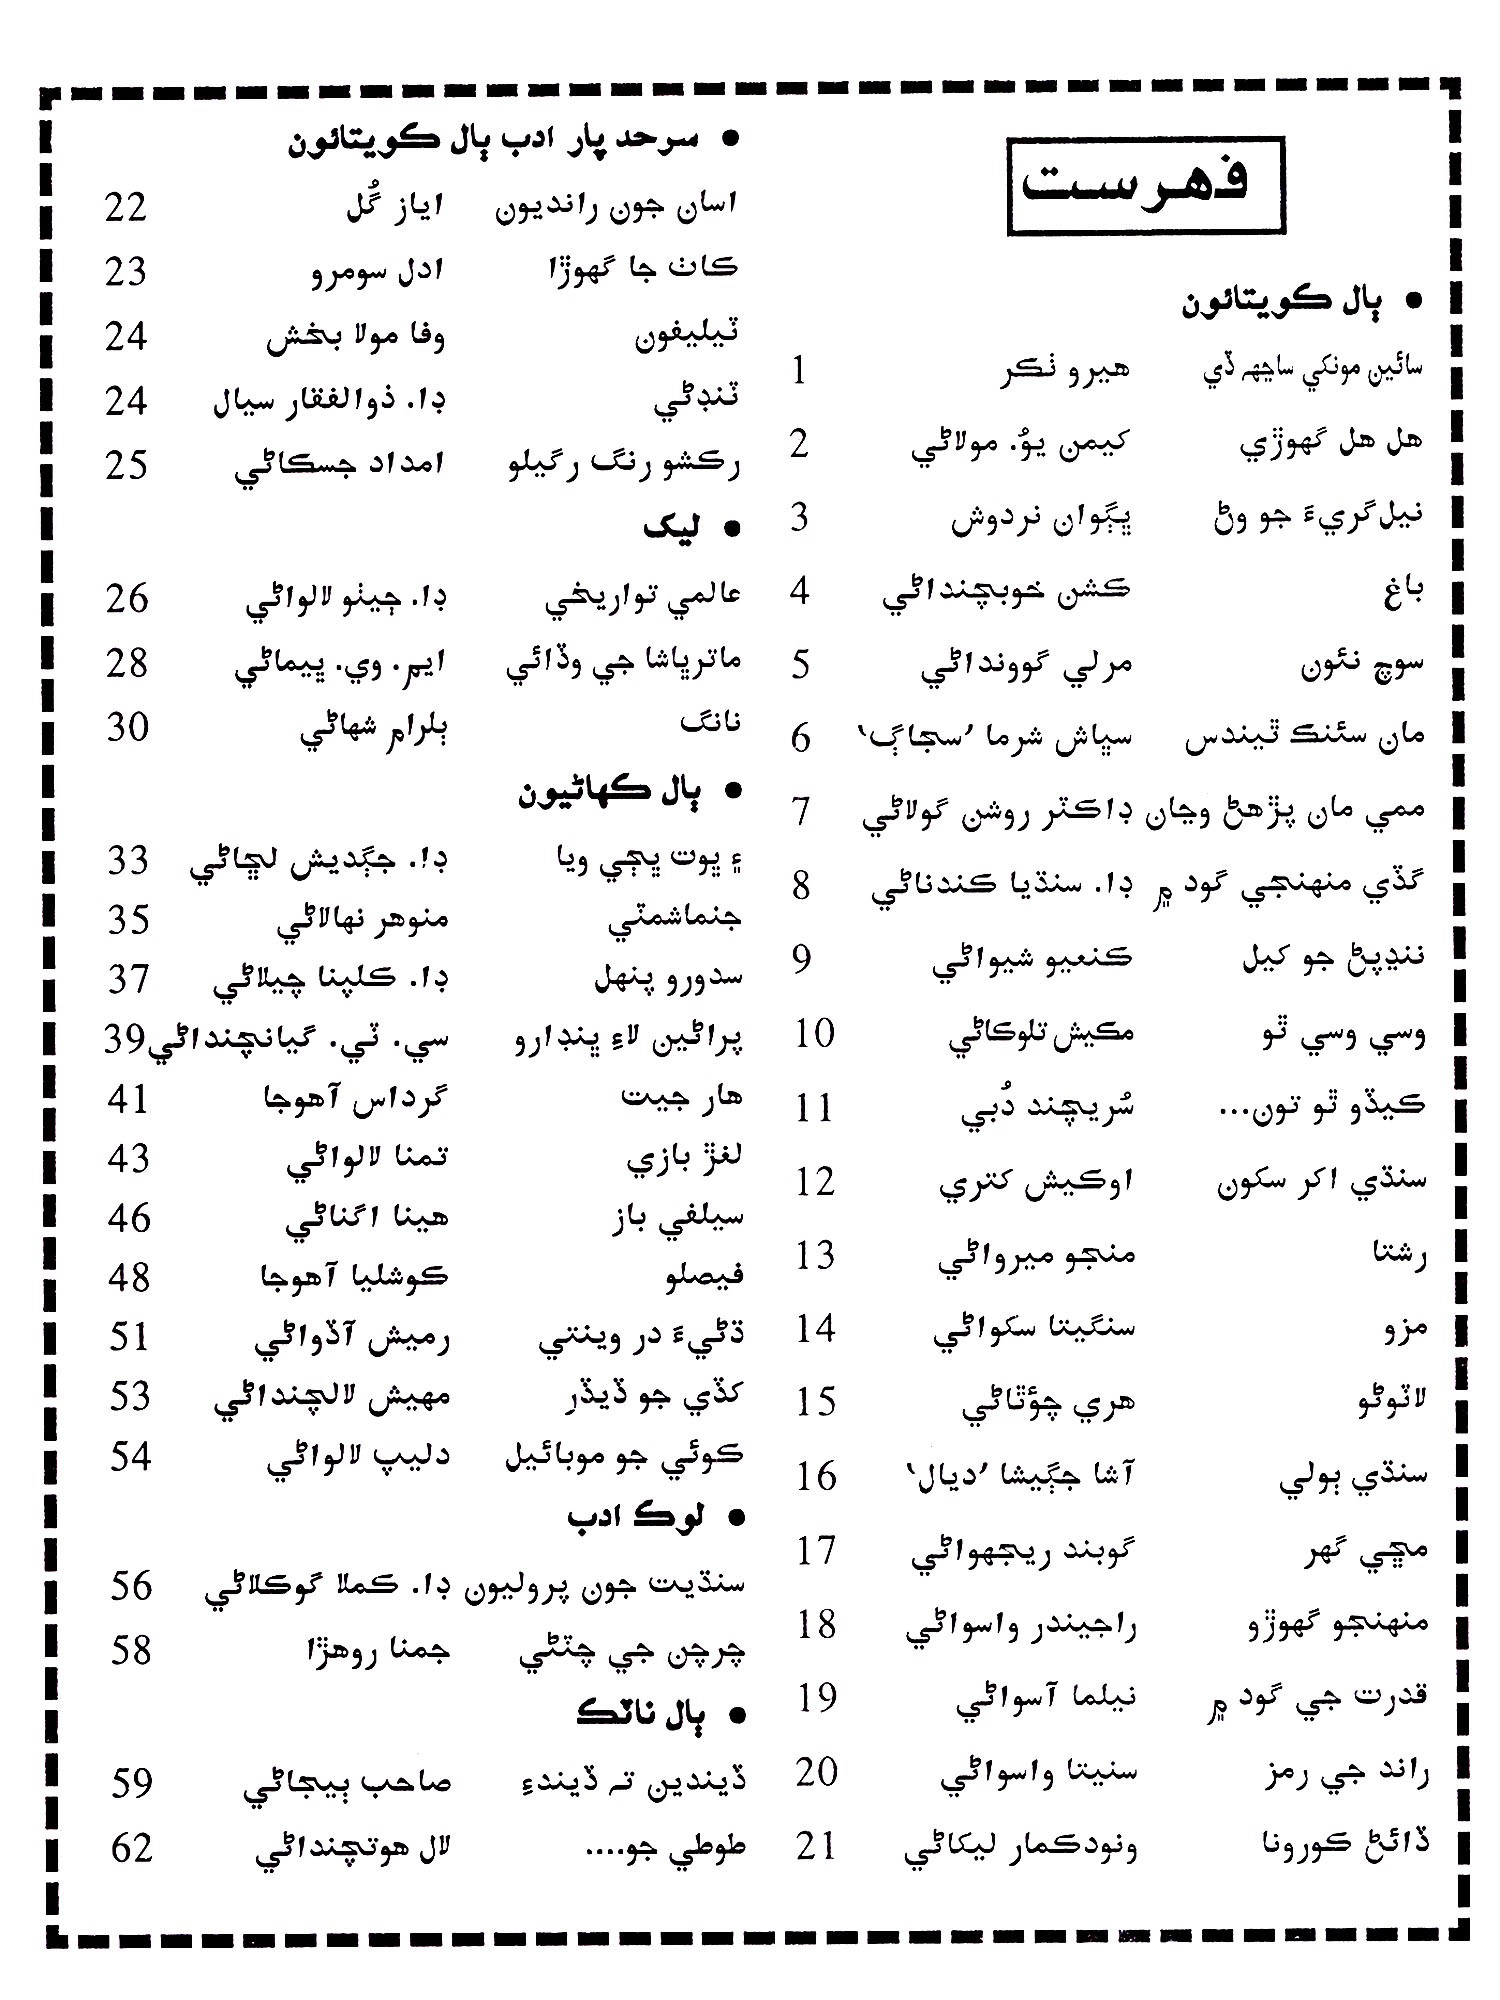 فهرست
• ٻال ڪويتائون
سائين مونکي ساڃهہ ڏي هيرو ٺڪر 1
هل هل گهوڙي کيمن يوُ. مولاڻي 2
نيل گريءَ جو وڻ ڀڳوان نردوش 3
باغ ڪشن خوبچنداڻي 4
سوچ نئون مرلي گوونداڻي 5
مان سئنڪ ٿيندس سڀاش شرما ’سڃاڳ‘ 6
ممي مان پڙهڻ وڃان ڊاڪٽر روشن گولاڻي 7
گڏي منهنجي گود ۾ ڊا. سنڌيا ڪندناڻي 8
ننڍپڻ جو کيل ڪنعيو شيواڻي 9
وسي وسي ٿو مڪيش تلوڪاڻي 10
ڪيڏو ٿو تون... سُريچند دُبي 11
سنڌي اکر سکون اوڪيش کتري 12
رشتا منجو ميرواڻي 13
مزو سنگيتا سکواڻي 14
لاٽوڻو هري چؤٿاڻي 15
سنڌي ٻولي آشا جڳيشا ’ديال‘ 16
مڇي گهر گوبند ريجهواڻي 17
منهنجو گهوڙو راجيندر واسواڻي 18
قدرت جي گود ۾ نيلما آسواڻي 19
راند جي رمز سنيتا واسواڻي 20
ڏائڻ ڪورونا ونودڪمار ليکاڻي 21
• سرحد پار ادب ٻال ڪويتائون
اسان جون رانديون اياز گُل 22
ڪاٺ جا گهوڙا ادل سومرو 23
ٽيليفون وفا مولا بخش 24
ٽنڊڻي ڊا. ذوالفقار سيال 24
رڪشو رنگ رگيلو امداد جسڪاڻي 25
• ليک
عالمي تواريخي ڊا. ڄيٺو لالواڻي 26
ماترڀاشا جي وڏائي ايم. وي. ڀيماڻي 28
نانگ ٻلرام شهاڻي 30
• ٻال ڪهاڻيون
۽ ڀوت ڀڄي ويا ڊا. جڳديش لڇاڻي 33
جنماشمٽي منوهر نهالاڻي 35
سدورو پنهل ڊا. ڪلپنا چيلاڻي 37
پراڻين لاءِ ڀنڊارو سي. ٽي. گيانچنداڻي 39
هار جيت گرداس آهوجا 41
لفڙ بازي تمنا لالواڻي 43
سيلفي باز هينا اگناڻي 46
فيصلو ڪوشليا آهوجا 48
ڌڻيءَ در وينتي رميش آڏواڻي 51
کڏي جو ڏيڏر مهيش لالچنداڻي 53
ڪوئي جو موبائيل دليپ لالواڻي 54
• لوڪ ادب
سنڌيت جون پروليون ڊا. ڪملا گوڪلاڻي 56
چرچن جي چٽڻي جمنا روهڙا 58
• ٻال ناٽڪ
ڏيندين تہ ڏيندءِ صاحب ٻيجاڻي 59
طوطي جو.... لال هوتچنداڻي 62